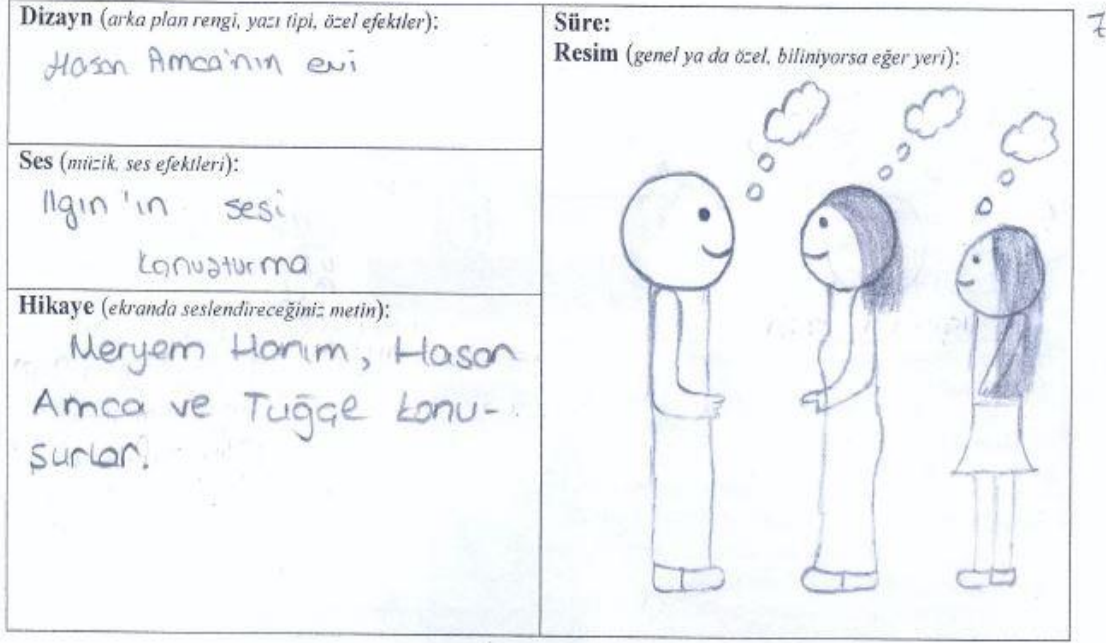 Dizayn (arka plan rengi, yazı tipi, özel efektler):
Hasan Amca'nın evi
Ses (müzik, ses efektleri):
Ilgın 'ın sesi
konuşturma
Hikaye (ekranda seslendireceğiniz metin):
Meryem Hanım, Hasan
Amca ve Tuğçe konu-
şurlar.
Süre:
Resim (genel ya da özel, biliniyorsa eğer yeri):
7